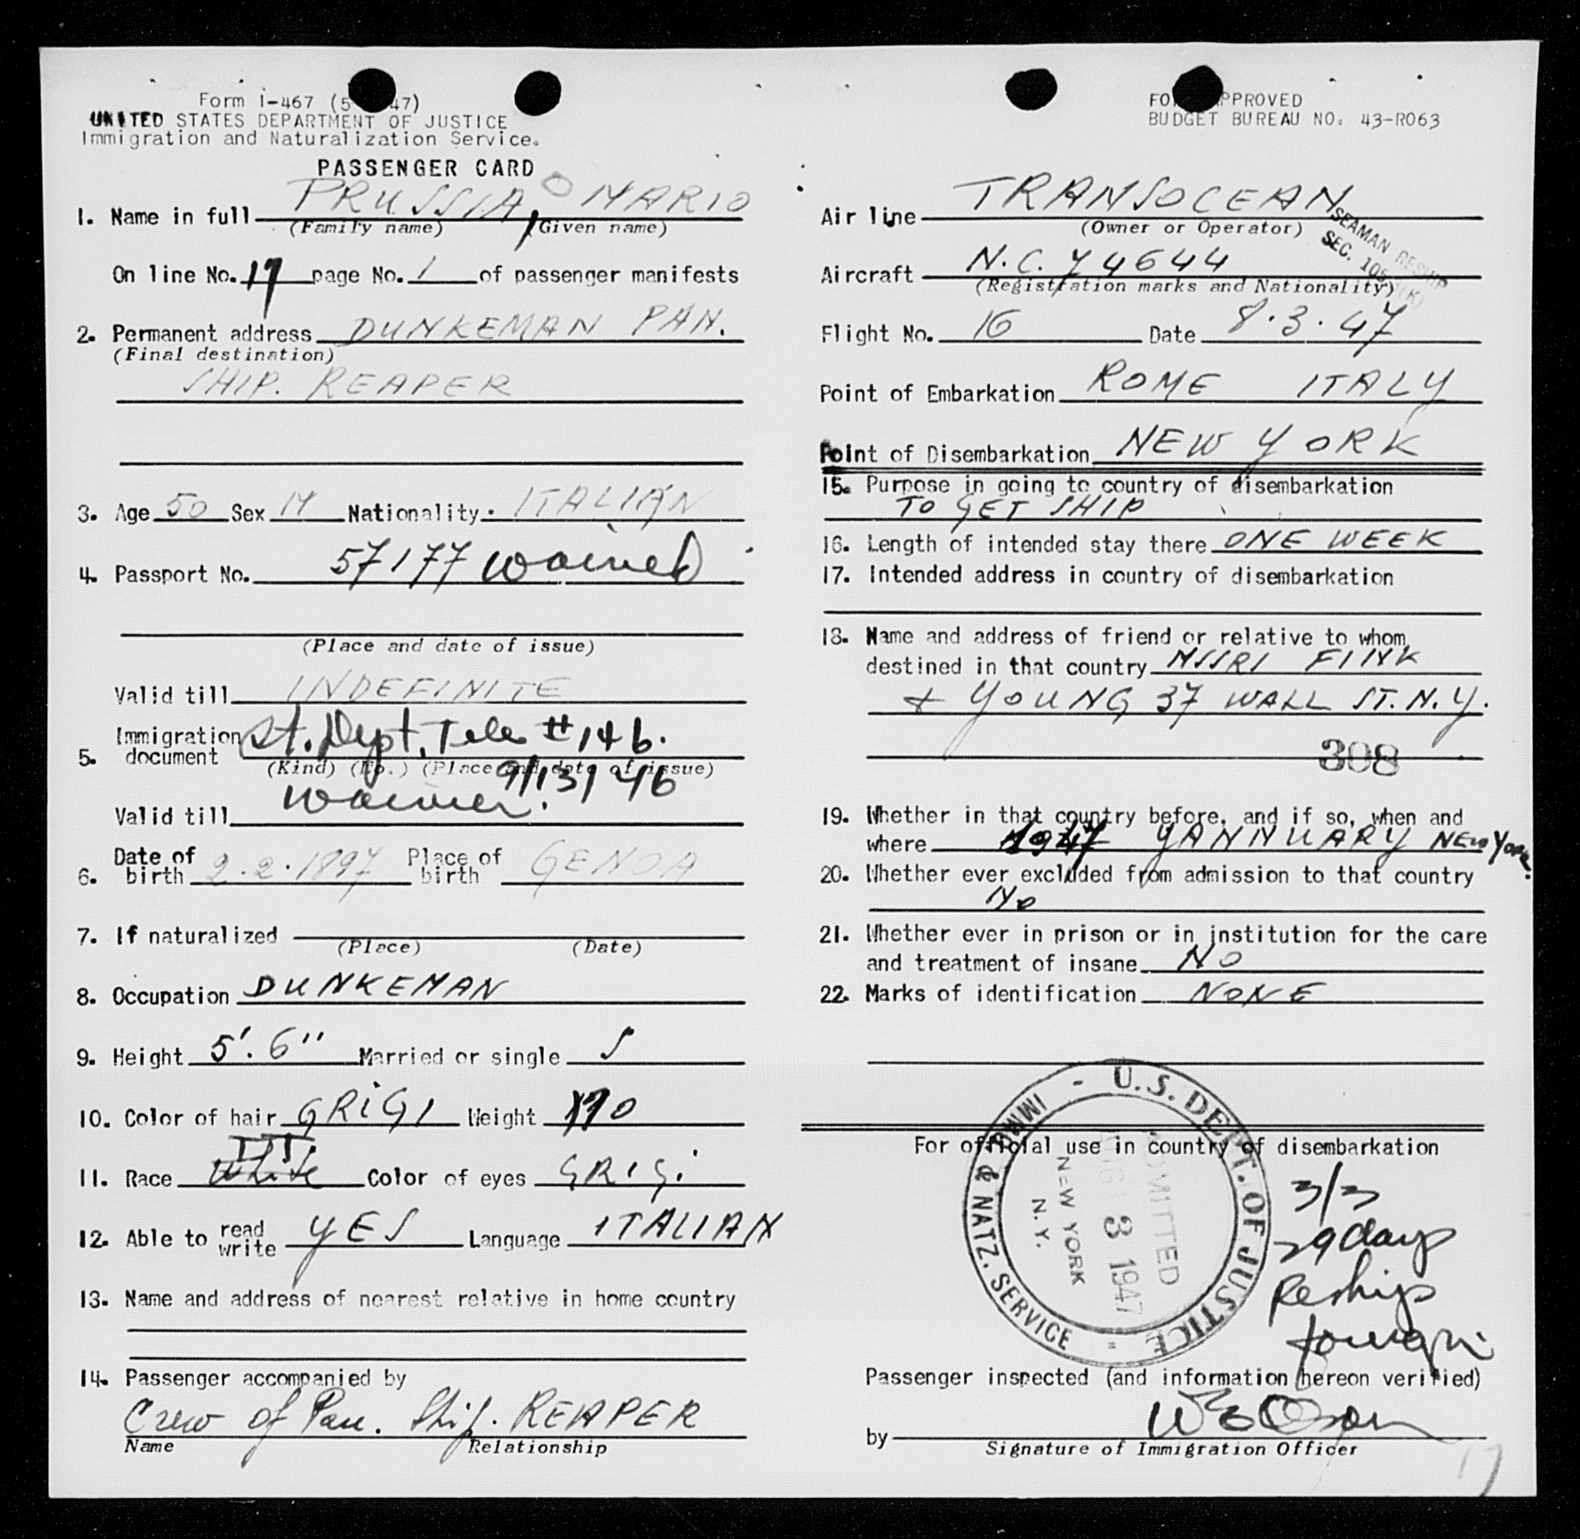 Form I-467 (5 47)
UNITED STATES DEPARTMENT OF JUSTICE
Immigration and Naturalization Service.
PASSENGER CARD
1. Name in full PRUSSIA, MARIO
(Family name) (Given name)
On line No. 17 page No. 1 of passenger manifests
2. Permanent address DUNKEMAN PAN.
(Final destination)
SHIP. REAPER
3. Age 50 Sex M Nationality. ITALIAN
4. Passport No. 57177 waived
(Place and date of issue)
Valid till INDEFINITE
5. Immigration document St. Dept. Tele #146.
(Kind) (No.) (Place and date of issue)
9/13/46
Valid till waiver.
6. Date of birth 2.2.1897 Place of birth GENOA
7. If naturalized
(Place) (Date)
8. Occupation DUNKEMAN
9. Height 5'.6" Married or single S
10. Color of hair GRIGI Weight 170
11. Race White Color of eyes GRIGI
12. Able to read write YES Language ITALIAN
13. Name and address of nearest relative in home country
14. Passenger accompanied by
Crew of Pan. Ship. REAPER
Name Relationship
FO APPROVED
BUDGET BUREAU NO. 43-R063
Air line TRANSOCEAN
(Owner or Operator)
SEAMAN RESHIP
SEC. 105 (K)
Aircraft N.C. 74644
(Registration marks and Nationality)
Flight No. 16 Date 8.3.47
Point of Embarkation ROME ITALY
Point of Disembarkation NEW YORK
15. Purpose in going to country of disembarkation
TO GET SHIP
16. Length of intended stay there ONE WEEK
17. Intended address in country of disembarkation
18. Name and address of friend or relative to whom
destined in that country MSSRI FINK
+ YOUNG 37 WALL ST. N.Y.
308
19. Whether in that country before, and if so, when and
where 1947 YANNUARY NEW YORK.
20. Whether ever excluded from admission to that country
No
21. Whether ever in prison or in institution for the care
and treatment of insane NO
22. Marks of identification NONE
For official use in country of disembarkation
U.S. DEPT. OF JUSTICE - IMMI. & NATZ. SERVICE -
ADMITTED
AUG 3 1947
NEW YORK
N.Y.
3/3
29 days
Reship
foreign
Passenger inspected (and information hereon verified)
by
Signature of Immigration Officer
17